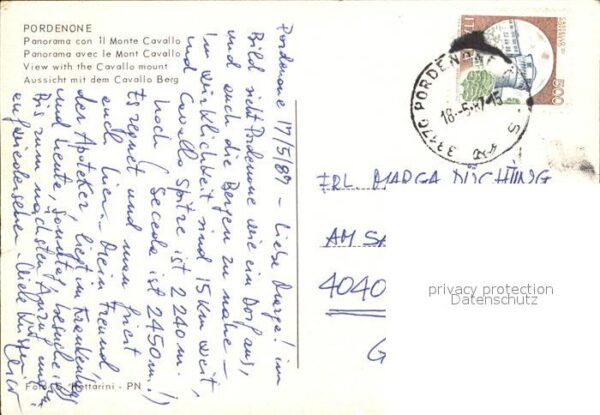 PORDENONE
Panorama con il Monte Cavallo
Panorama avec le Mont Cavallo
View with the Cavallo mount
Aussicht mit dem Cavallo Berg
Pordenone 17/5/87 – Liebe Marga! im
Bild sieht Pordenone wie ein Dorf aus,
und auch die Bergen zu nahe –
Im wirklichkeit sind 15 km weit,
und Cavallo Spitze ist 2240 m.
hoch (Seceda ist 2450 m.!)
Es regnet und man friert
auch hier. – Mein Freund,
der Apoteker, liegt im Krankenhaus
und heute, Sonntag, besuche ich
Bis zum nächsten
auf wiedersehen. Viele Grüsse
Foto - PN
ITALIA
500
33170 PORDENONE
18-5-87-15
FRL. MARGA
AM SA
4040
G
privacy protection
Datenschutz